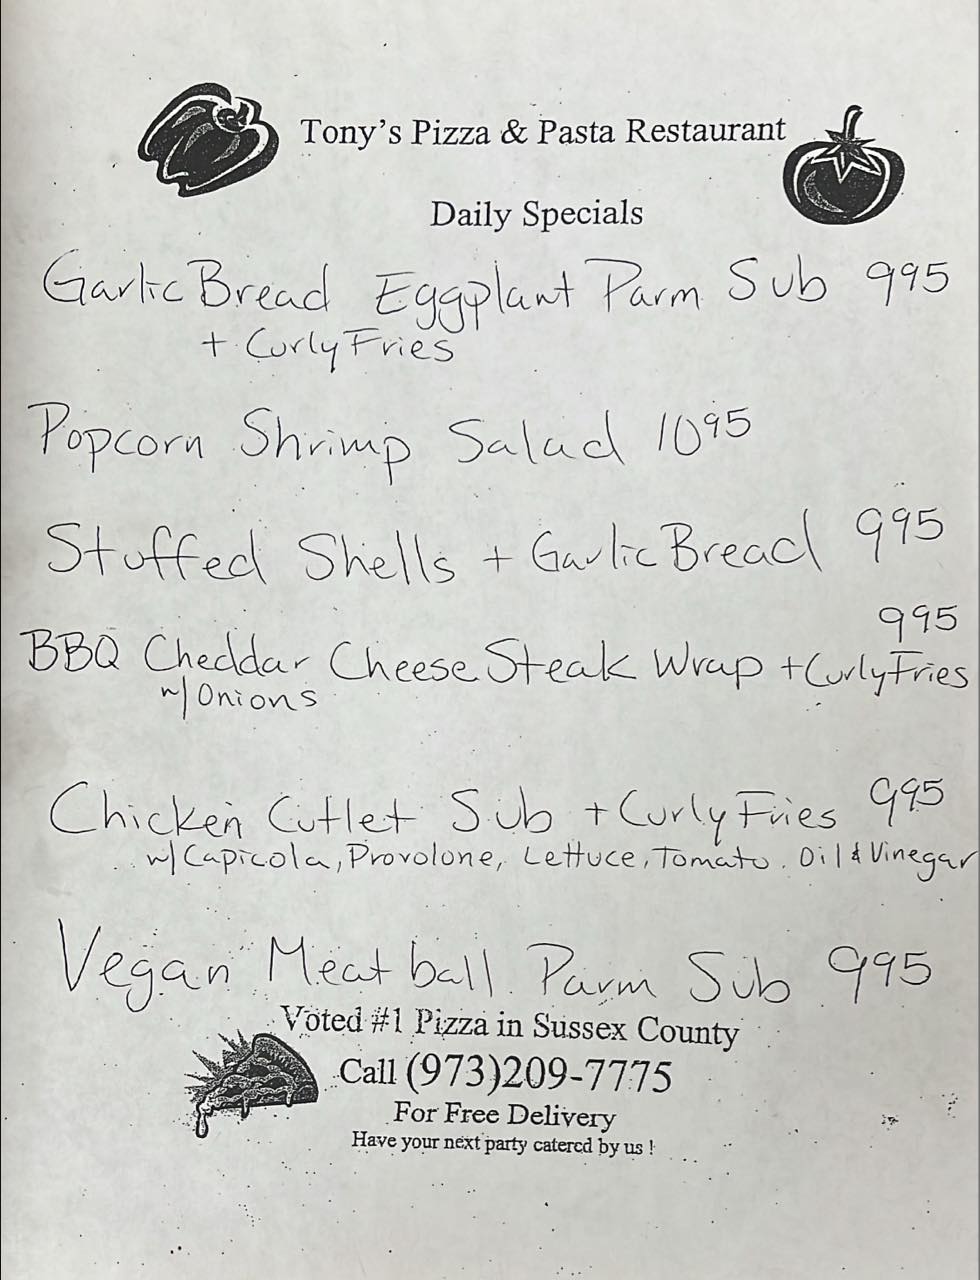 Tony's Pizza & Pasta Restaurant
Daily Specials
Garlic Bread Eggplant Parm Sub 995
+ Curly Fries
Popcorn Shrimp Salad 1095
Stuffed Shells + Garlic Bread 995
995
BBQ Cheddar Cheese Steak Wrap + Curly Fries
w/ Onions
Chicken Cutlet Sub + Curly Fries 995
w/ Capicola, Provolone, Lettuce, Tomato. Oil & Vinegar
Vegan Meatball Parm Sub 995
Voted #1 Pizza in Sussex County
Call (973)209-7775
For Free Delivery
Have your next party catered by us !